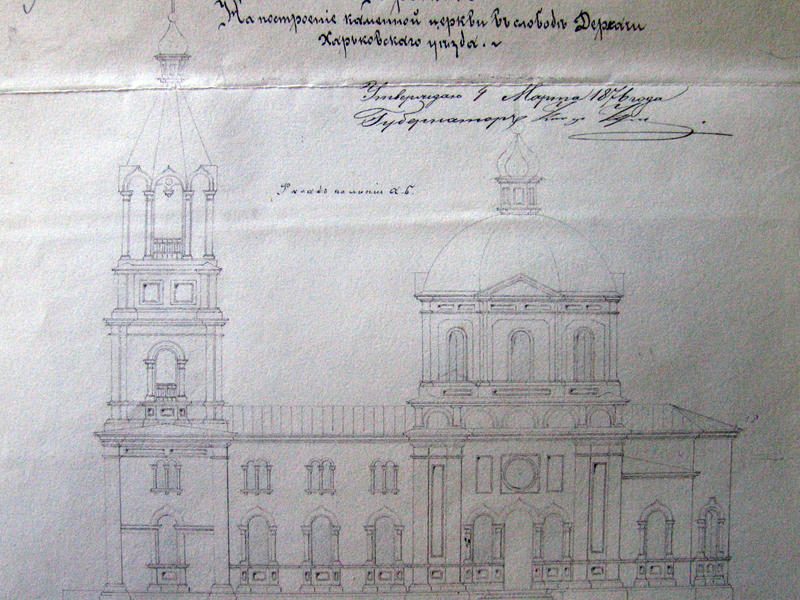 На построеніе каменной церкви въ слободѣ Дергачи
Харьковскаго уѣзда.
Утверждаю 4 Марта 1876 года
Губернаторъ
Фасадъ по линіи А.Б.